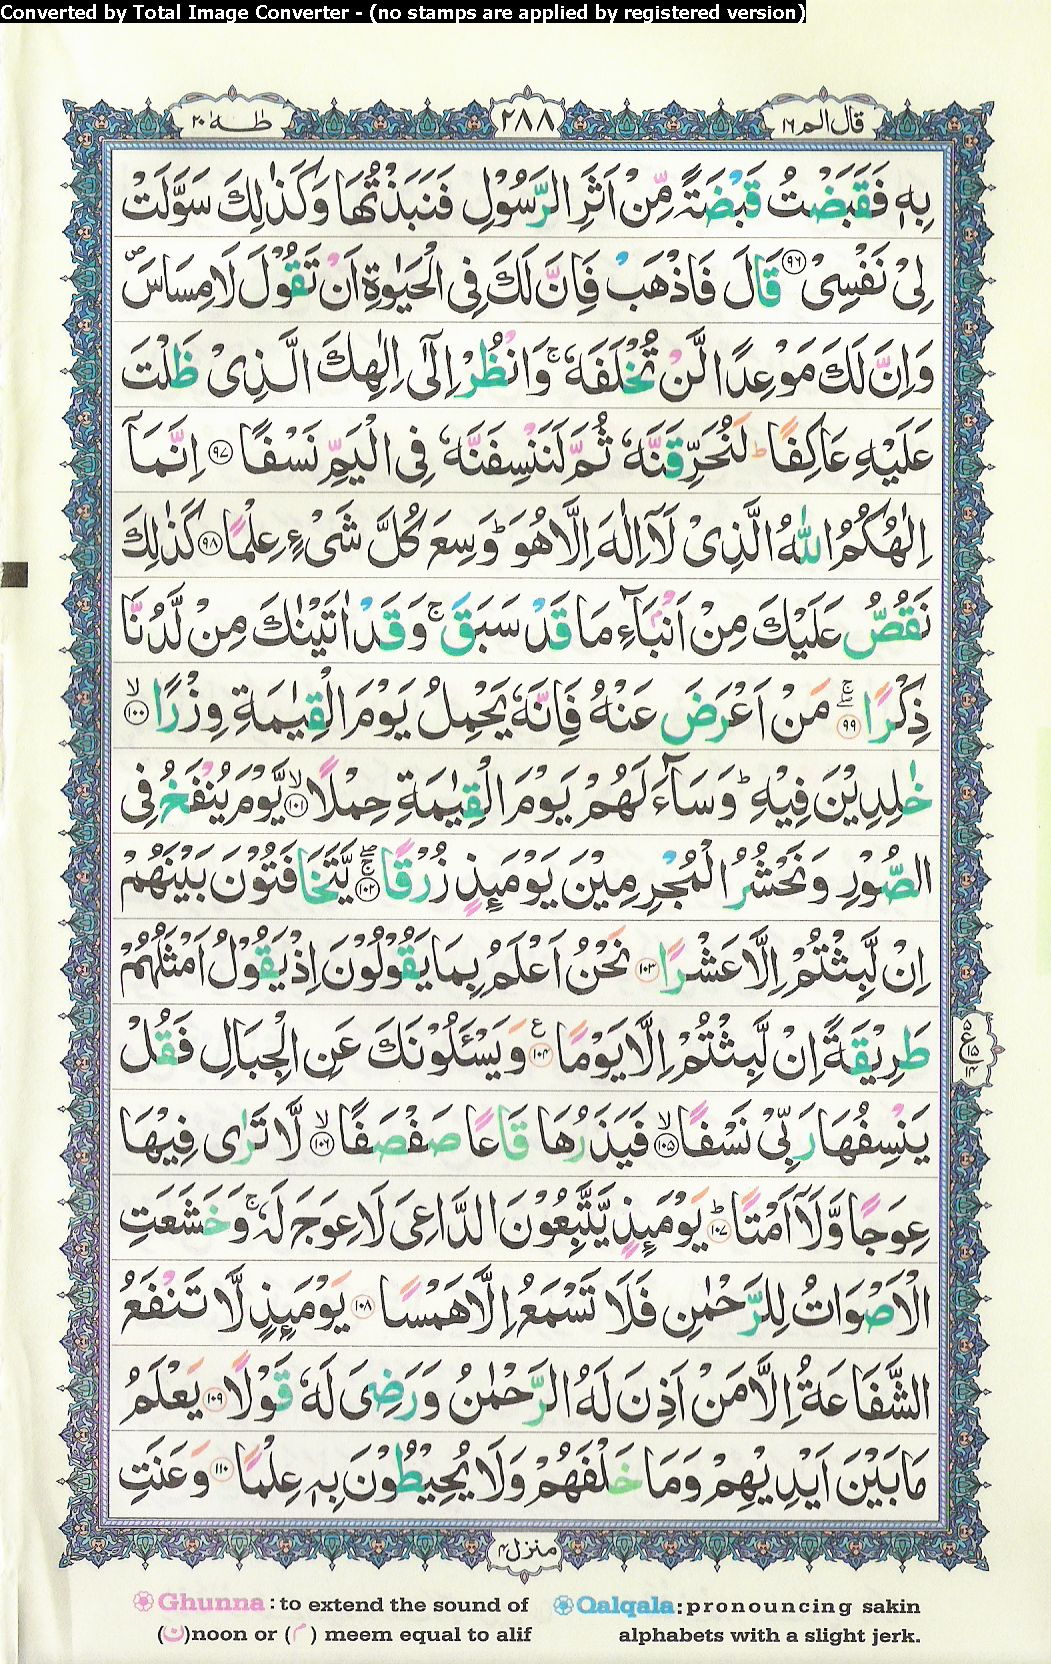 Converted by Total Image Converter - (no stamps are applied by registered version)
قال الم ١٦ ٢٨٨ طٰهٰ ٢٠
بِهٖ فَقَبَضْتُ قَبْضَةً مِّنْ اَثَرِ الرَّسُوْلِ فَنَبَذْتُهَا وَكَذٰلِكَ سَوَّلَتْ
لِیْ نَفْسِیْ ﴿۹۶﴾ قَالَ فَاذْهَبْ فَاِنَّ لَكَ فِی الْحَیٰوةِ اَنْ تَقُوْلَ لَا مِسَاسَ ۪
وَاِنَّ لَكَ مَوْعِدًا لَّنْ تُخْلَفَهٗ ۚ وَانْظُرْ اِلٰۤی اِلٰهِكَ الَّذِیْ ظَلْتَ
عَلَیْهِ عَاكِفًا ؕ لَنُحَرِّقَنَّهٗ ثُمَّ لَنَنْسِفَنَّهٗ فِی الْیَمِّ نَسْفًا ﴿۹۷﴾ اِنَّمَاۤ
اِلٰهُكُمُ اللّٰهُ الَّذِیْ لَاۤ اِلٰهَ اِلَّا هُوَ ؕ وَسِعَ كُلَّ شَیْءٍ عِلْمًا ﴿۹۸﴾ كَذٰلِكَ
نَقُصُّ عَلَیْكَ مِنْ اَنْۢبَآءِ مَا قَدْ سَبَقَ ۚ وَقَدْ اٰتَیْنٰكَ مِنْ لَّدُنَّا
ذِكْرًا ﴿۹۹﴾ ۖۚ مَنْ اَعْرَضَ عَنْهُ فَاِنَّهٗ یَحْمِلُ یَوْمَ الْقِیٰمَةِ وِزْرًا ﴿۱۰۰﴾ ۙ
خٰلِدِیْنَ فِیْهِ ؕ وَسَآءَ لَهُمْ یَوْمَ الْقِیٰمَةِ حِمْلًا ﴿۱۰۱﴾ ۙ یَّوْمَ یُنْفَخُ فِی
الصُّوْرِ وَنَحْشُرُ الْمُجْرِمِیْنَ یَوْمَىِٕذٍ زُرْقًا ﴿۱۰۲﴾ ۖۚ یَّتَخَافَتُوْنَ بَیْنَهُمْ
اِنْ لَّبِثْتُمْ اِلَّا عَشْرًا ﴿۱۰۳﴾ نَحْنُ اَعْلَمُ بِمَا یَقُوْلُوْنَ اِذْ یَقُوْلُ اَمْثَلُهُمْ
طَرِیْقَةً اِنْ لَّبِثْتُمْ اِلَّا یَوْمًا ﴿۱۰۴﴾ ع وَیَسْـَٔلُوْنَكَ عَنِ الْجِبَالِ فَقُلْ
یَنْسِفُهَا رَبِّیْ نَسْفًا ﴿۱۰۵﴾ ۙ فَیَذَرُهَا قَاعًا صَفْصَفًا ﴿۱۰۶﴾ ۙ لَّا تَرٰی فِیْهَا
عِوَجًا وَّلَاۤ اَمْتًا ﴿۱۰۷﴾ ؕ یَوْمَىِٕذٍ یَّتَّبِعُوْنَ الدَّاعِیَ لَا عِوَجَ لَهٗ ۚ وَخَشَعَتِ
الْاَصْوَاتُ لِلرَّحْمٰنِ فَلَا تَسْمَعُ اِلَّا هَمْسًا ﴿۱۰۸﴾ یَوْمَىِٕذٍ لَّا تَنْفَعُ
الشَّفَاعَةُ اِلَّا مَنْ اَذِنَ لَهُ الرَّحْمٰنُ وَرَضِیَ لَهٗ قَوْلًا ﴿۱۰۹﴾ یَعْلَمُ
مَا بَیْنَ اَیْدِیْهِمْ وَمَا خَلْفَهُمْ وَلَا یُحِیْطُوْنَ بِهٖ عِلْمًا ﴿۱۱۰﴾ وَعَنَتِ
ع ۵ ۱۵ ۱۴
منزل ۴
Ghunna : to extend the sound of
(ن)noon or (م) meem equal to alif
Qalqala: pronouncing sakin
alphabets with a slight jerk.